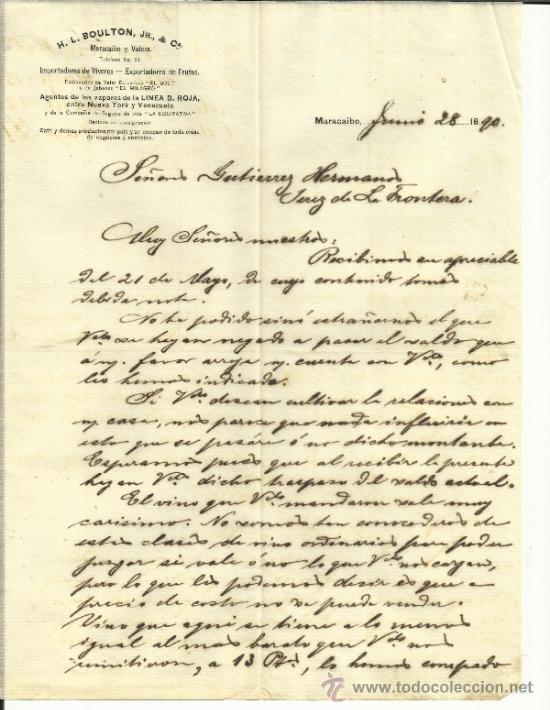 H. L. BOULTON, JR., & Cª
Maracaibo y Valera.
Importadores de Víveres — Exportadores de Frutos.
Fabricantes de Velas Esteáricas "EL SOL"
y de Jabones "EL MILAGRO"
Agentes de los vapores de la LINEA D. ROJA,
entre Nueva York y Venezuela
y de la Compañía de Seguros de vida "LA EQUITATIVA"
Reciben en consignacion
Café y demas productos del pais y se ocupan de toda clase
de negocios á comision.
Maracaibo, Junio 28 1890.
Señores Gutierrez Hermanos
Jerez de La Frontera.
Muy Señores nuestros:
Recibimos su apreciable
del 21 de Mayo, de cuyo contenido tomamos
debida nota.
No ha podido sinó estrañarnos el que
Vds se hayan negado a pasar el saldo que
á n/ favor arroja n/ cuenta con Vds, como
les hemos indicado.
Si Vds desean cultivar la relaciones con
n/ casa, nos parece que nada influiria en
esto que se pasáre ó no dicho montante.
Esperamos pues que al recibir la presente
hayan Vds dicho traspaso del saldo actual.
El vino que Vds mandaron sale muy
carisimo. No somos tan conocedores de
estas clases de vino ordinarios para poder
juzgar si vale ó no lo que Vds nos cargan,
pero lo que les podemos decir es que a
precio de costo no se puede vender.
Vino que aqui se tiene a lo menos
igual al mas barato que Vds nos
remitieron, a 13 Pts, lo hemos comprado
www.todocoleccion.net